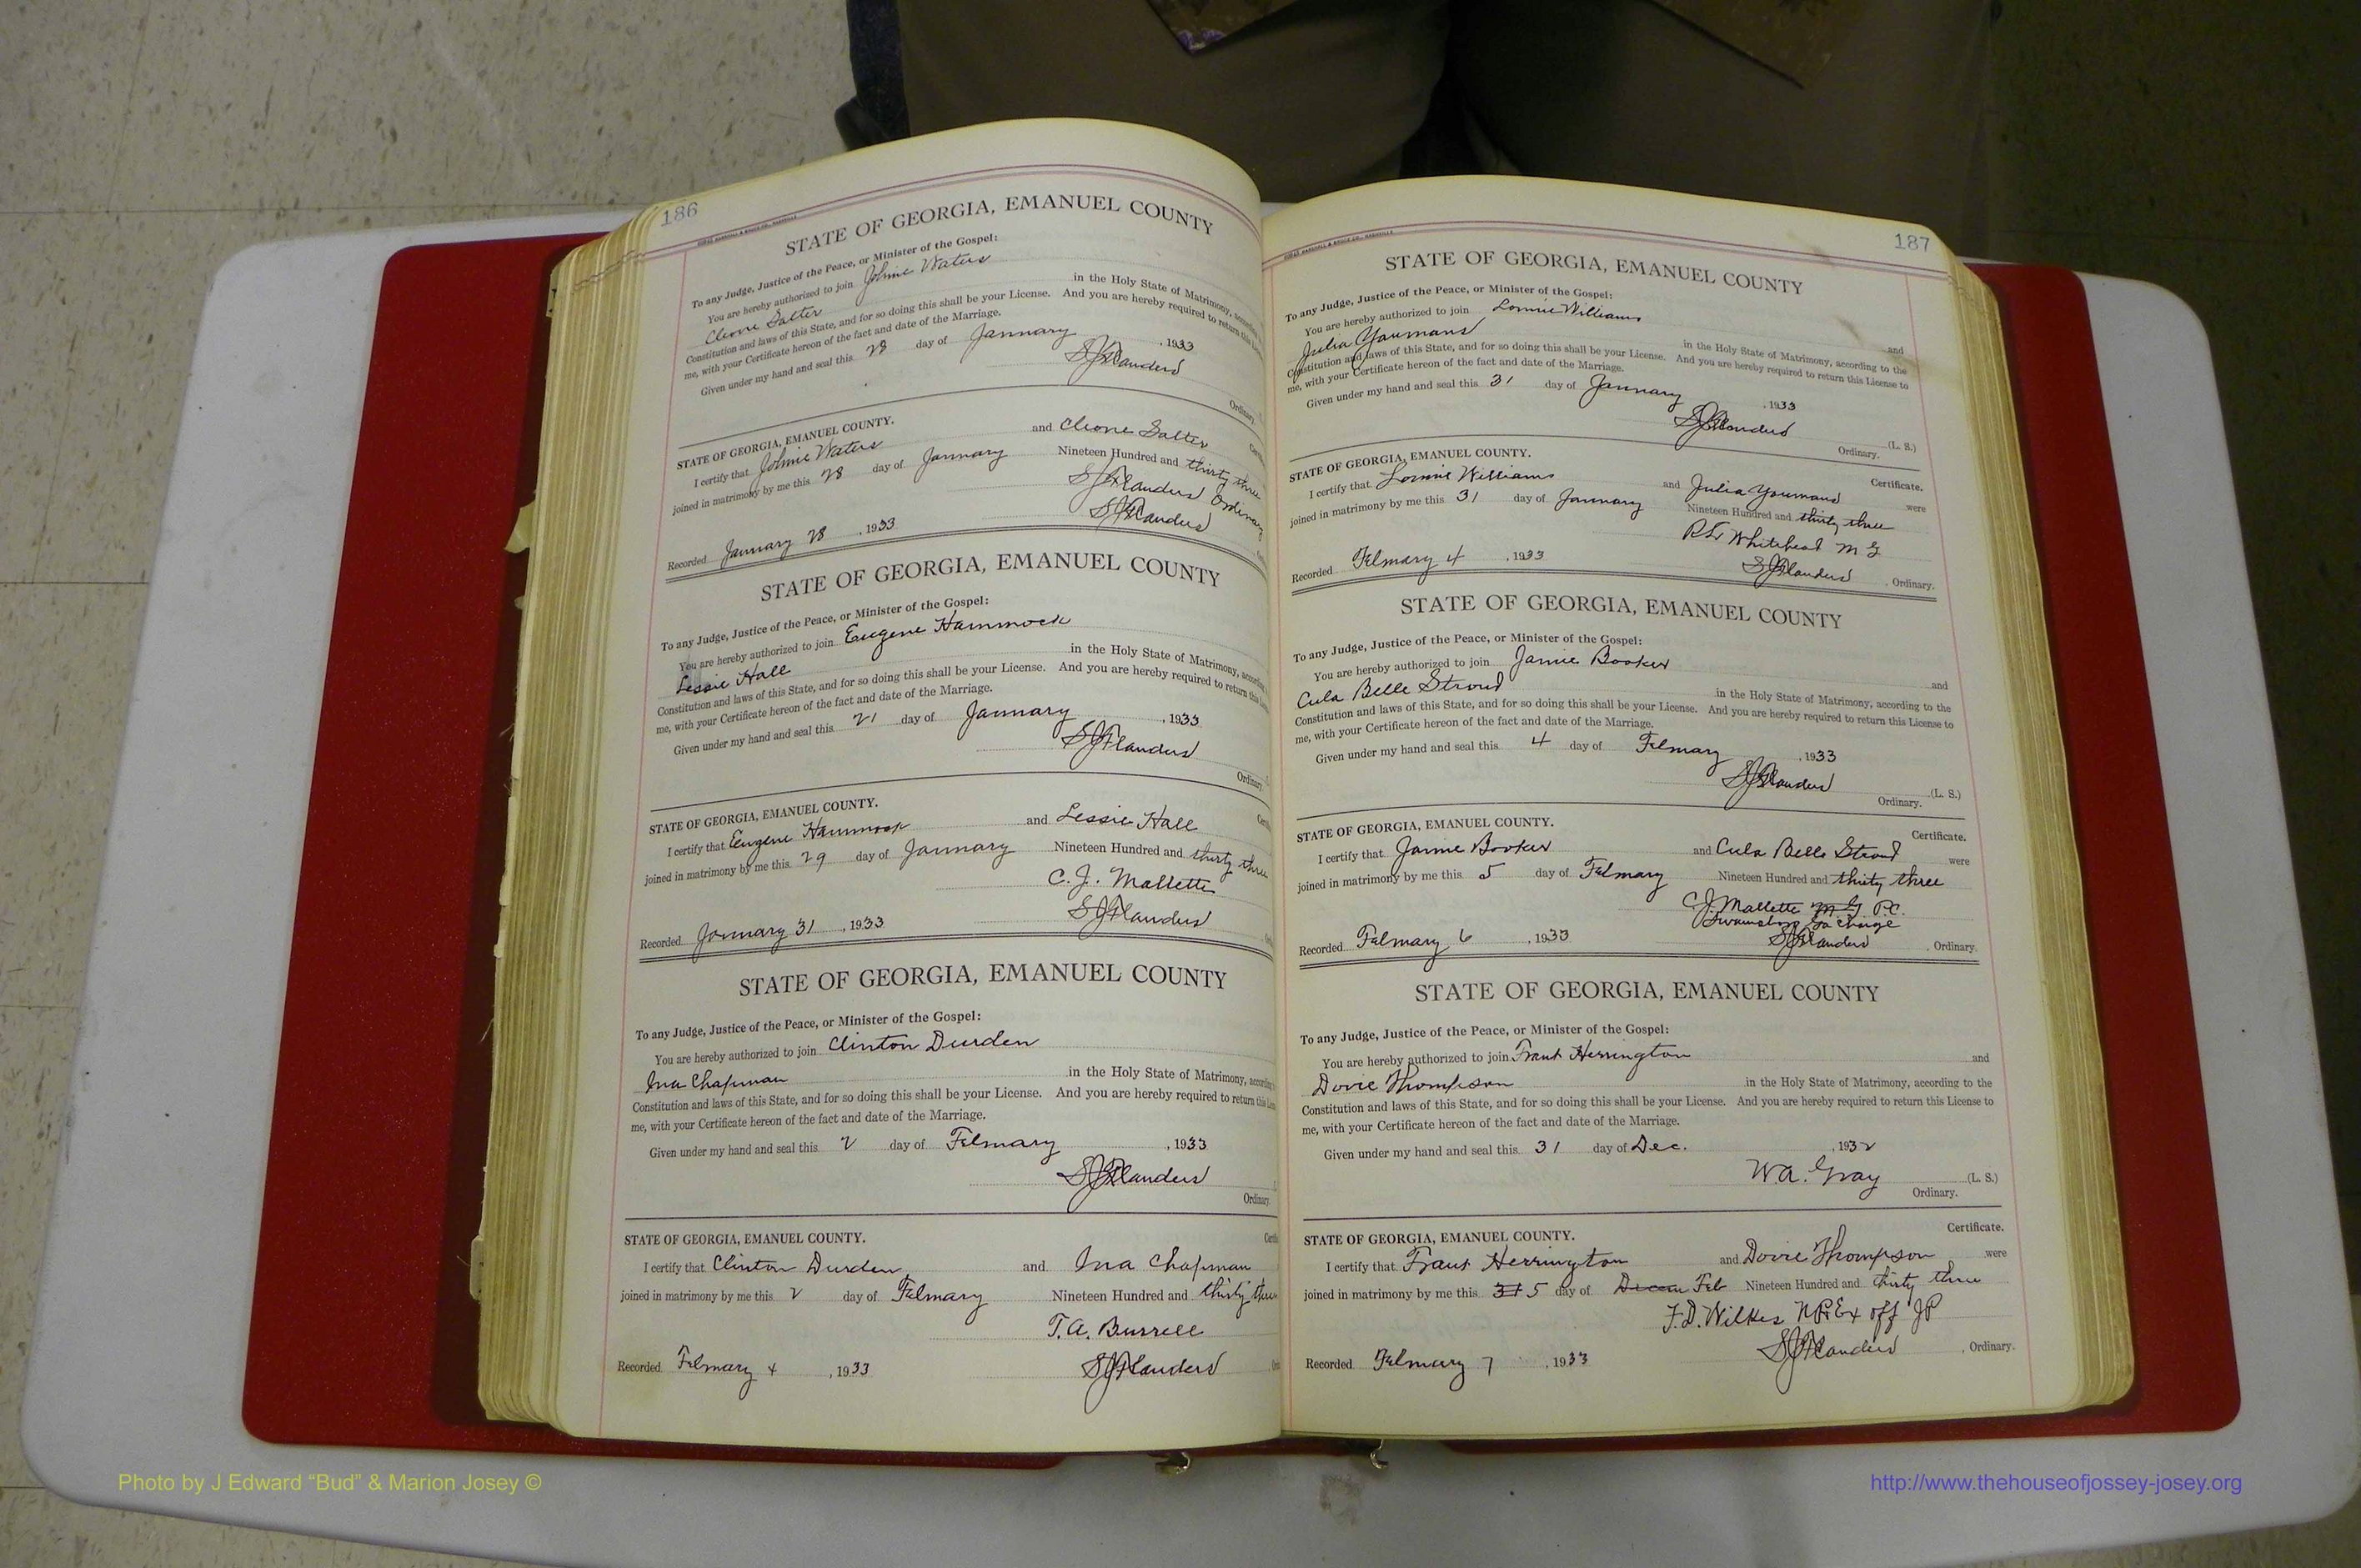 186
STATE OF GEORGIA, EMANUEL COUNTY
To any Judge, Justice of the Peace, or Minister of the Gospel:
You are hereby authorized to join Johnie Waters
Cleone Salter in the Holy State of Matrimony,
Constitution and laws of this State, and for so doing this shall be your License. And you are hereby required to return
me, with your Certificate hereon of the fact and date of the Marriage.
Given under my hand and seal this 28 day of January, 1933
S J Flanders
Ordinary.
STATE OF GEORGIA, EMANUEL COUNTY.
I certify that Johnie Waters and Cleone Salter
joined in matrimony by me this 28 day of January Nineteen Hundred and thirty three
S J Flanders Ordinary
Recorded January 28, 1933 S J Flanders
STATE OF GEORGIA, EMANUEL COUNTY
To any Judge, Justice of the Peace, or Minister of the Gospel:
You are hereby authorized to join Eugene Hammock
Lessie Hall in the Holy State of Matrimony,
Constitution and laws of this State, and for so doing this shall be your License. And you are hereby required to return this
me, with your Certificate hereon of the fact and date of the Marriage.
Given under my hand and seal this 21 day of January, 1933
S J Flanders
Ordinary.
STATE OF GEORGIA, EMANUEL COUNTY.
I certify that Eugene Hammock and Lessie Hall
joined in matrimony by me this 29 day of January Nineteen Hundred and thirty three
C. J. Mallette
Recorded January 31, 1933 S J Flanders
STATE OF GEORGIA, EMANUEL COUNTY
To any Judge, Justice of the Peace, or Minister of the Gospel:
You are hereby authorized to join Clinton Durden
Ina Chapman in the Holy State of Matrimony,
Constitution and laws of this State, and for so doing this shall be your License. And you are hereby required to return this
me, with your Certificate hereon of the fact and date of the Marriage.
Given under my hand and seal this 2 day of February, 1933
S J Flanders
Ordinary.
STATE OF GEORGIA, EMANUEL COUNTY.
I certify that Clinton Durden and Ina Chapman
joined in matrimony by me this 2 day of February Nineteen Hundred and thirty three
T. A. Burrell
Recorded February 4, 1933 S J Flanders
187
STATE OF GEORGIA, EMANUEL COUNTY
To any Judge, Justice of the Peace, or Minister of the Gospel:
You are hereby authorized to join Lonnie Williams and
Julia Youmans in the Holy State of Matrimony, according to the
Constitution and laws of this State, and for so doing this shall be your License. And you are hereby required to return this License to
me, with your Certificate hereon of the fact and date of the Marriage.
Given under my hand and seal this 31 day of January, 1933
S J Flanders (L. S.)
Ordinary.
STATE OF GEORGIA, EMANUEL COUNTY. Certificate.
I certify that Lonnie Williams and Julia Youmans were
joined in matrimony by me this 31 day of January Nineteen Hundred and thirty three
Whitehead M G
Recorded February 4, 1933 S J Flanders, Ordinary.
STATE OF GEORGIA, EMANUEL COUNTY
To any Judge, Justice of the Peace, or Minister of the Gospel:
You are hereby authorized to join Jamie Booker and
Cula Belle Stroud in the Holy State of Matrimony, according to the
Constitution and laws of this State, and for so doing this shall be your License. And you are hereby required to return this License to
me, with your Certificate hereon of the fact and date of the Marriage.
Given under my hand and seal this 4 day of February, 1933
S J Flanders (L. S.)
Ordinary.
STATE OF GEORGIA, EMANUEL COUNTY. Certificate.
I certify that Jamie Booker and Cula Belle Stroud were
joined in matrimony by me this 5 day of February Nineteen Hundred and thirty three
C J Mallette M G P.C.
Swainsboro Ga charge
Recorded February 6, 1933 S J Flanders, Ordinary.
STATE OF GEORGIA, EMANUEL COUNTY
To any Judge, Justice of the Peace, or Minister of the Gospel:
You are hereby authorized to join Frank Herrington and
Dovie Thompson in the Holy State of Matrimony, according to the
Constitution and laws of this State, and for so doing this shall be your License. And you are hereby required to return this License to
me, with your Certificate hereon of the fact and date of the Marriage.
Given under my hand and seal this 31 day of Dec., 1932
W. A. Gray (L. S.)
Ordinary.
STATE OF GEORGIA, EMANUEL COUNTY. Certificate.
I certify that Frank Herrington and Dovie Thompson were
joined in matrimony by me this 31 5 day of Decem Feb Nineteen Hundred and thirty three
F. D. Wilkes N P & Ex off J P
Recorded February 7, 1933 S J Flanders, Ordinary.
Photo by J Edward “Bud” & Marion Josey ©
http://www.thehouseofjossey-josey.org